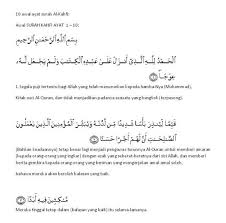 10 awal ayat surah Al-Kahfi:
Awal SURAH KAHFI AYAT 1 – 10:
بِسْمِ اللَّهِ الرَّحْمَنِ الرَّحِيمِ
الْحَمْدُ لِلَّهِ الَّذِي أَنْزَلَ عَلَى عَبْدِهِ الْكِتَابَ وَلَمْ يَجْعَلْ لَهُ
عِوَجًا
1. Segala puji tertentu bagi Allah yang telah menurunkan kepada hambaNya (Muhammad),
Kitab suci Al-Quran, dan tidak menjadikan padanya sesuatu yang bengkok (terpesong):
قَيِّمًا لِيُنْذِرَ بَأْسًا شَدِيدًا مِنْ لَدُنْهُ وَيُبَشِّرَ الْمُؤْمِنِينَ الَّذِينَ يَعْمَلُونَ
الصَّالِحَاتِ أَنَّ لَهُمْ أَجْرًا حَسَنًا
(Bahkan keadaannya) tetap benar lagi menjadi pengawas turunnya Al-Quran untuk memberi amaran
(kepada orang-orang yang ingkar) dengan azab yang seberat-beratnya dari sisi Allah, dan memberi
berita gembira kepada orang-orang yang beriman yang mengerjakan amal-amal soleh,
bahawa mereka akan beroleh balasan yang baik.
مَاكِثِينَ فِيهِ أَبَدًا
Mereka tinggal tetap dalam (balasan yang baik) itu selama-lamanya.